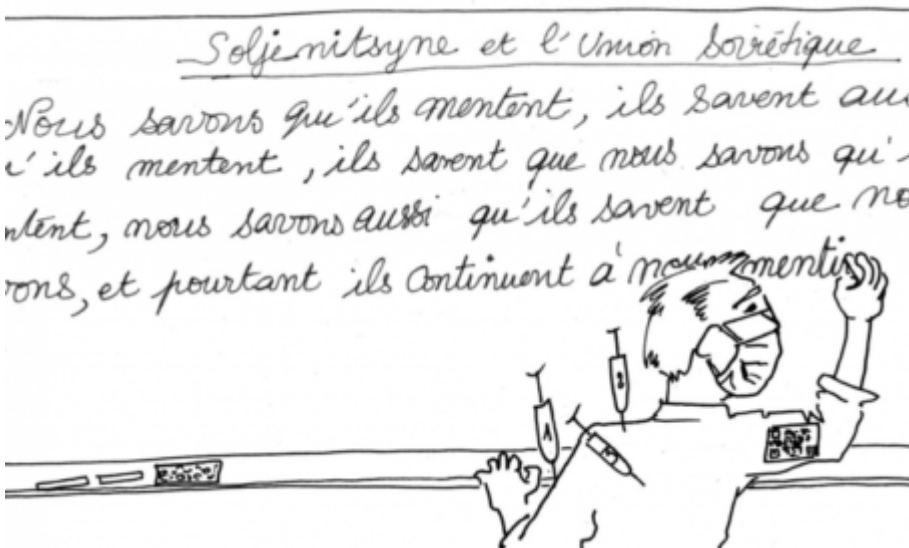 Soljenitsyne et l'Union Soviétique
Nous savons qu'ils mentent, ils savent aus
u'ils mentent, ils savent que nous savons qu'i
ntent, nous savons aussi qu'ils savent que no
vons, et pourtant ils continuent à nous mentir
A